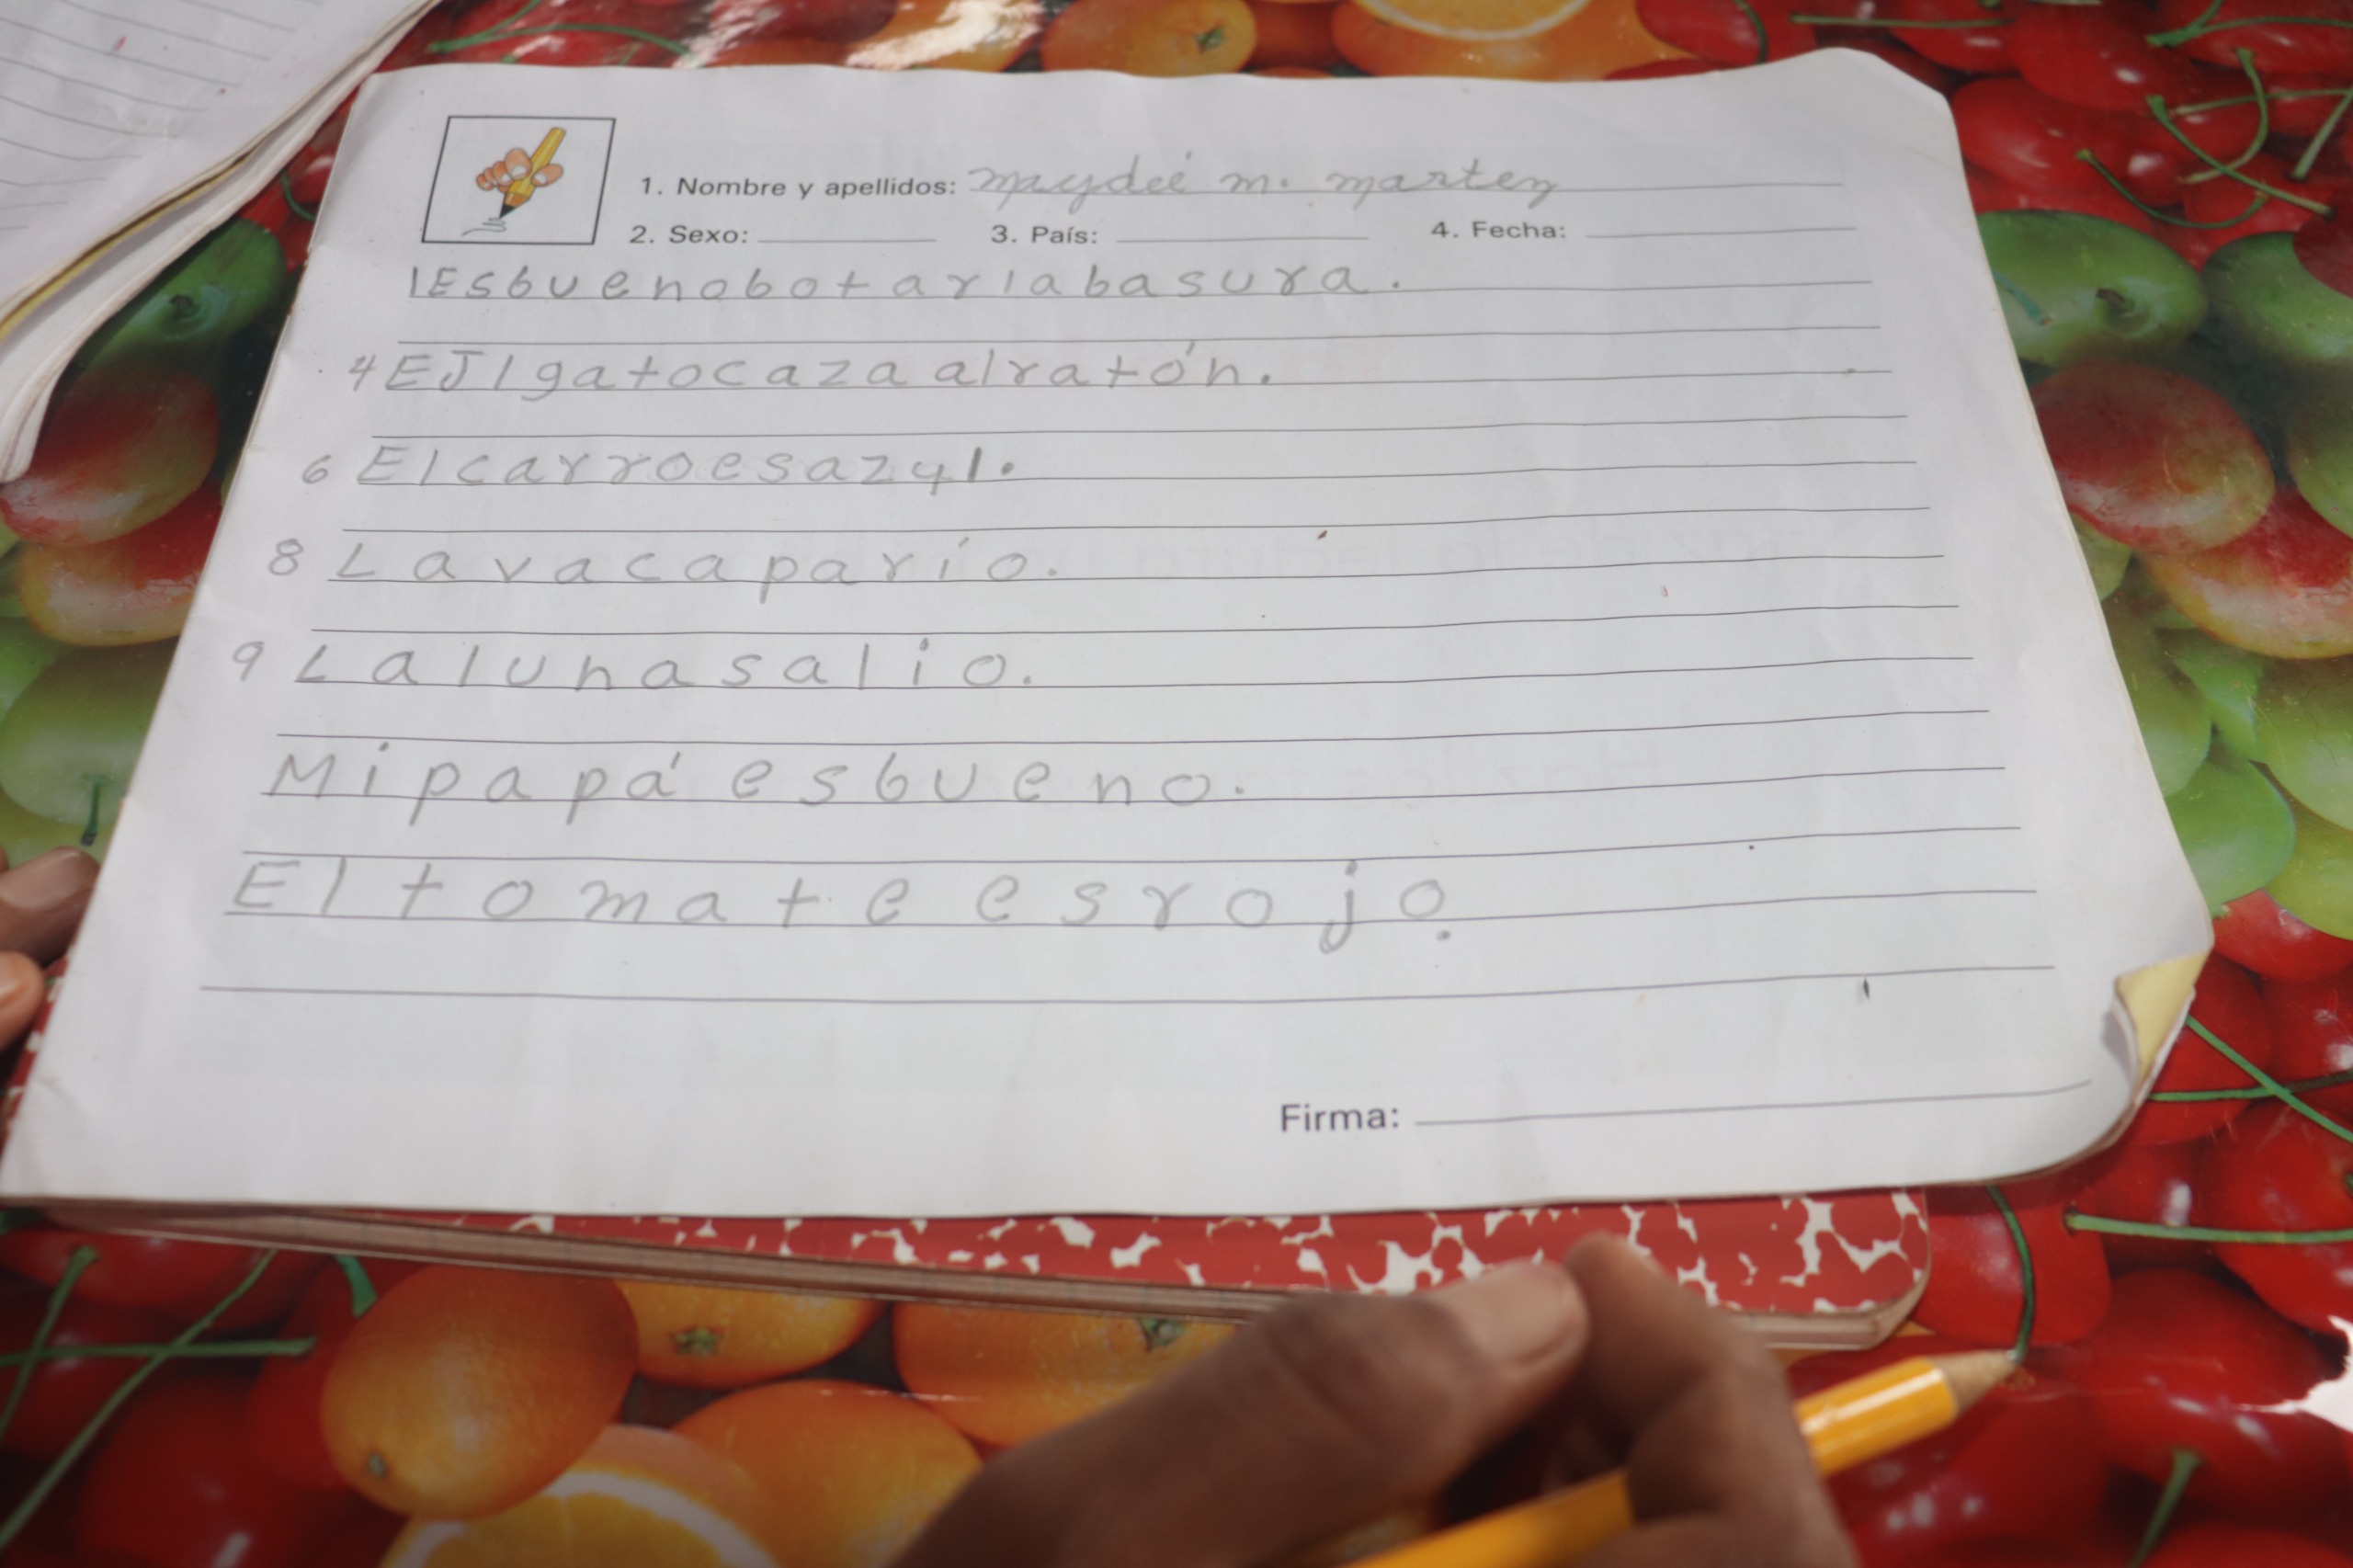 1. Nombre y apellidos: maydeé m. martey
2. Sexo: 3. País: 4. Fecha:
1Esbuenobotarlabasura.
4EJlgatocazaalratón.
6 Elcarroesazul.
8 Lavacaparío.
9 Lalunasalio.
Mipapá esbueno.
Eltomate esrojo.
Firma: